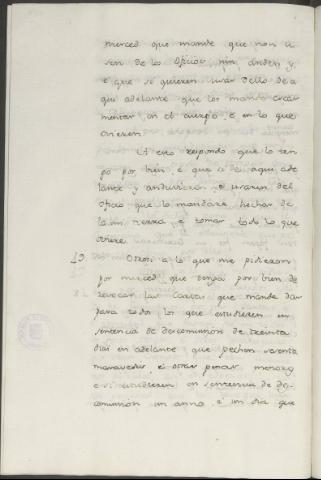 merced que mande que non u
sen de los oficios, nin anden y,
e que si quieren usar dello de a
qui adelante que los mande escar
mentar en el cuerpo, e en lo que
ovieren.
A esto respondo que lo ten
go por bien, é que si de aqui ade
lante y anduvieren e usaren del
oficio que lo mandaré hechar de
la mi tierra, é tomar todo lo que
oviere
19. Otrosi a lo que me pidieron
por merced que tenga por bien de
revocar las Cartas que mande dar
para todos los que estudieren en
sentencia de descomunion de treinta
dias en adelante que pechen sesenta
maravedis, é otras penas menores
e si estudieren en sentencia de des
comunion un anno, é un dia que